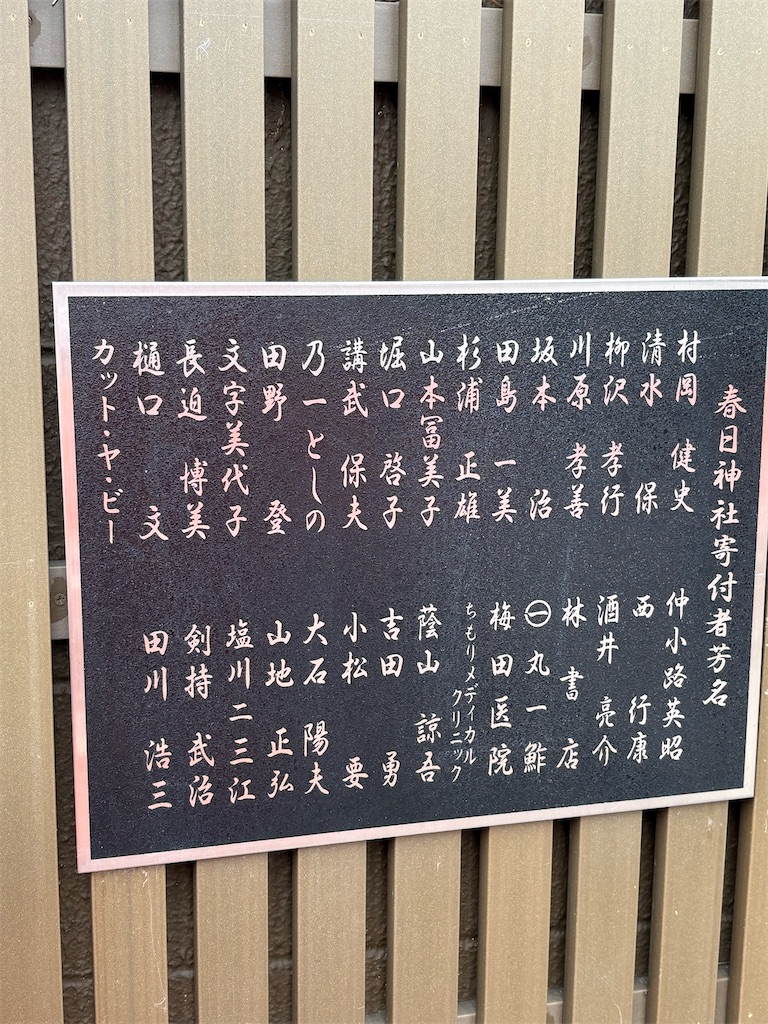 春日神社寄付者芳名
村岡 健史
清水 保
柳沢 孝行
川原 孝善
坂本 治
田島 一美
杉浦 正雄
山本冨美子
堀口 啓子
講武 保夫
乃一としの
田野 登
文字美代子
長迫 博美
樋口 文
カット・ヤ・ビー
仲小路英昭
西 行康
酒井 亮介
林書店
㊀丸一鮓
梅田医院
ちもりメディカル
クリニック
蔭山 諒吾
吉田 勇
小松 要
大石 陽夫
山地 正弘
塩川二三江
剣持 武治
田川 浩三